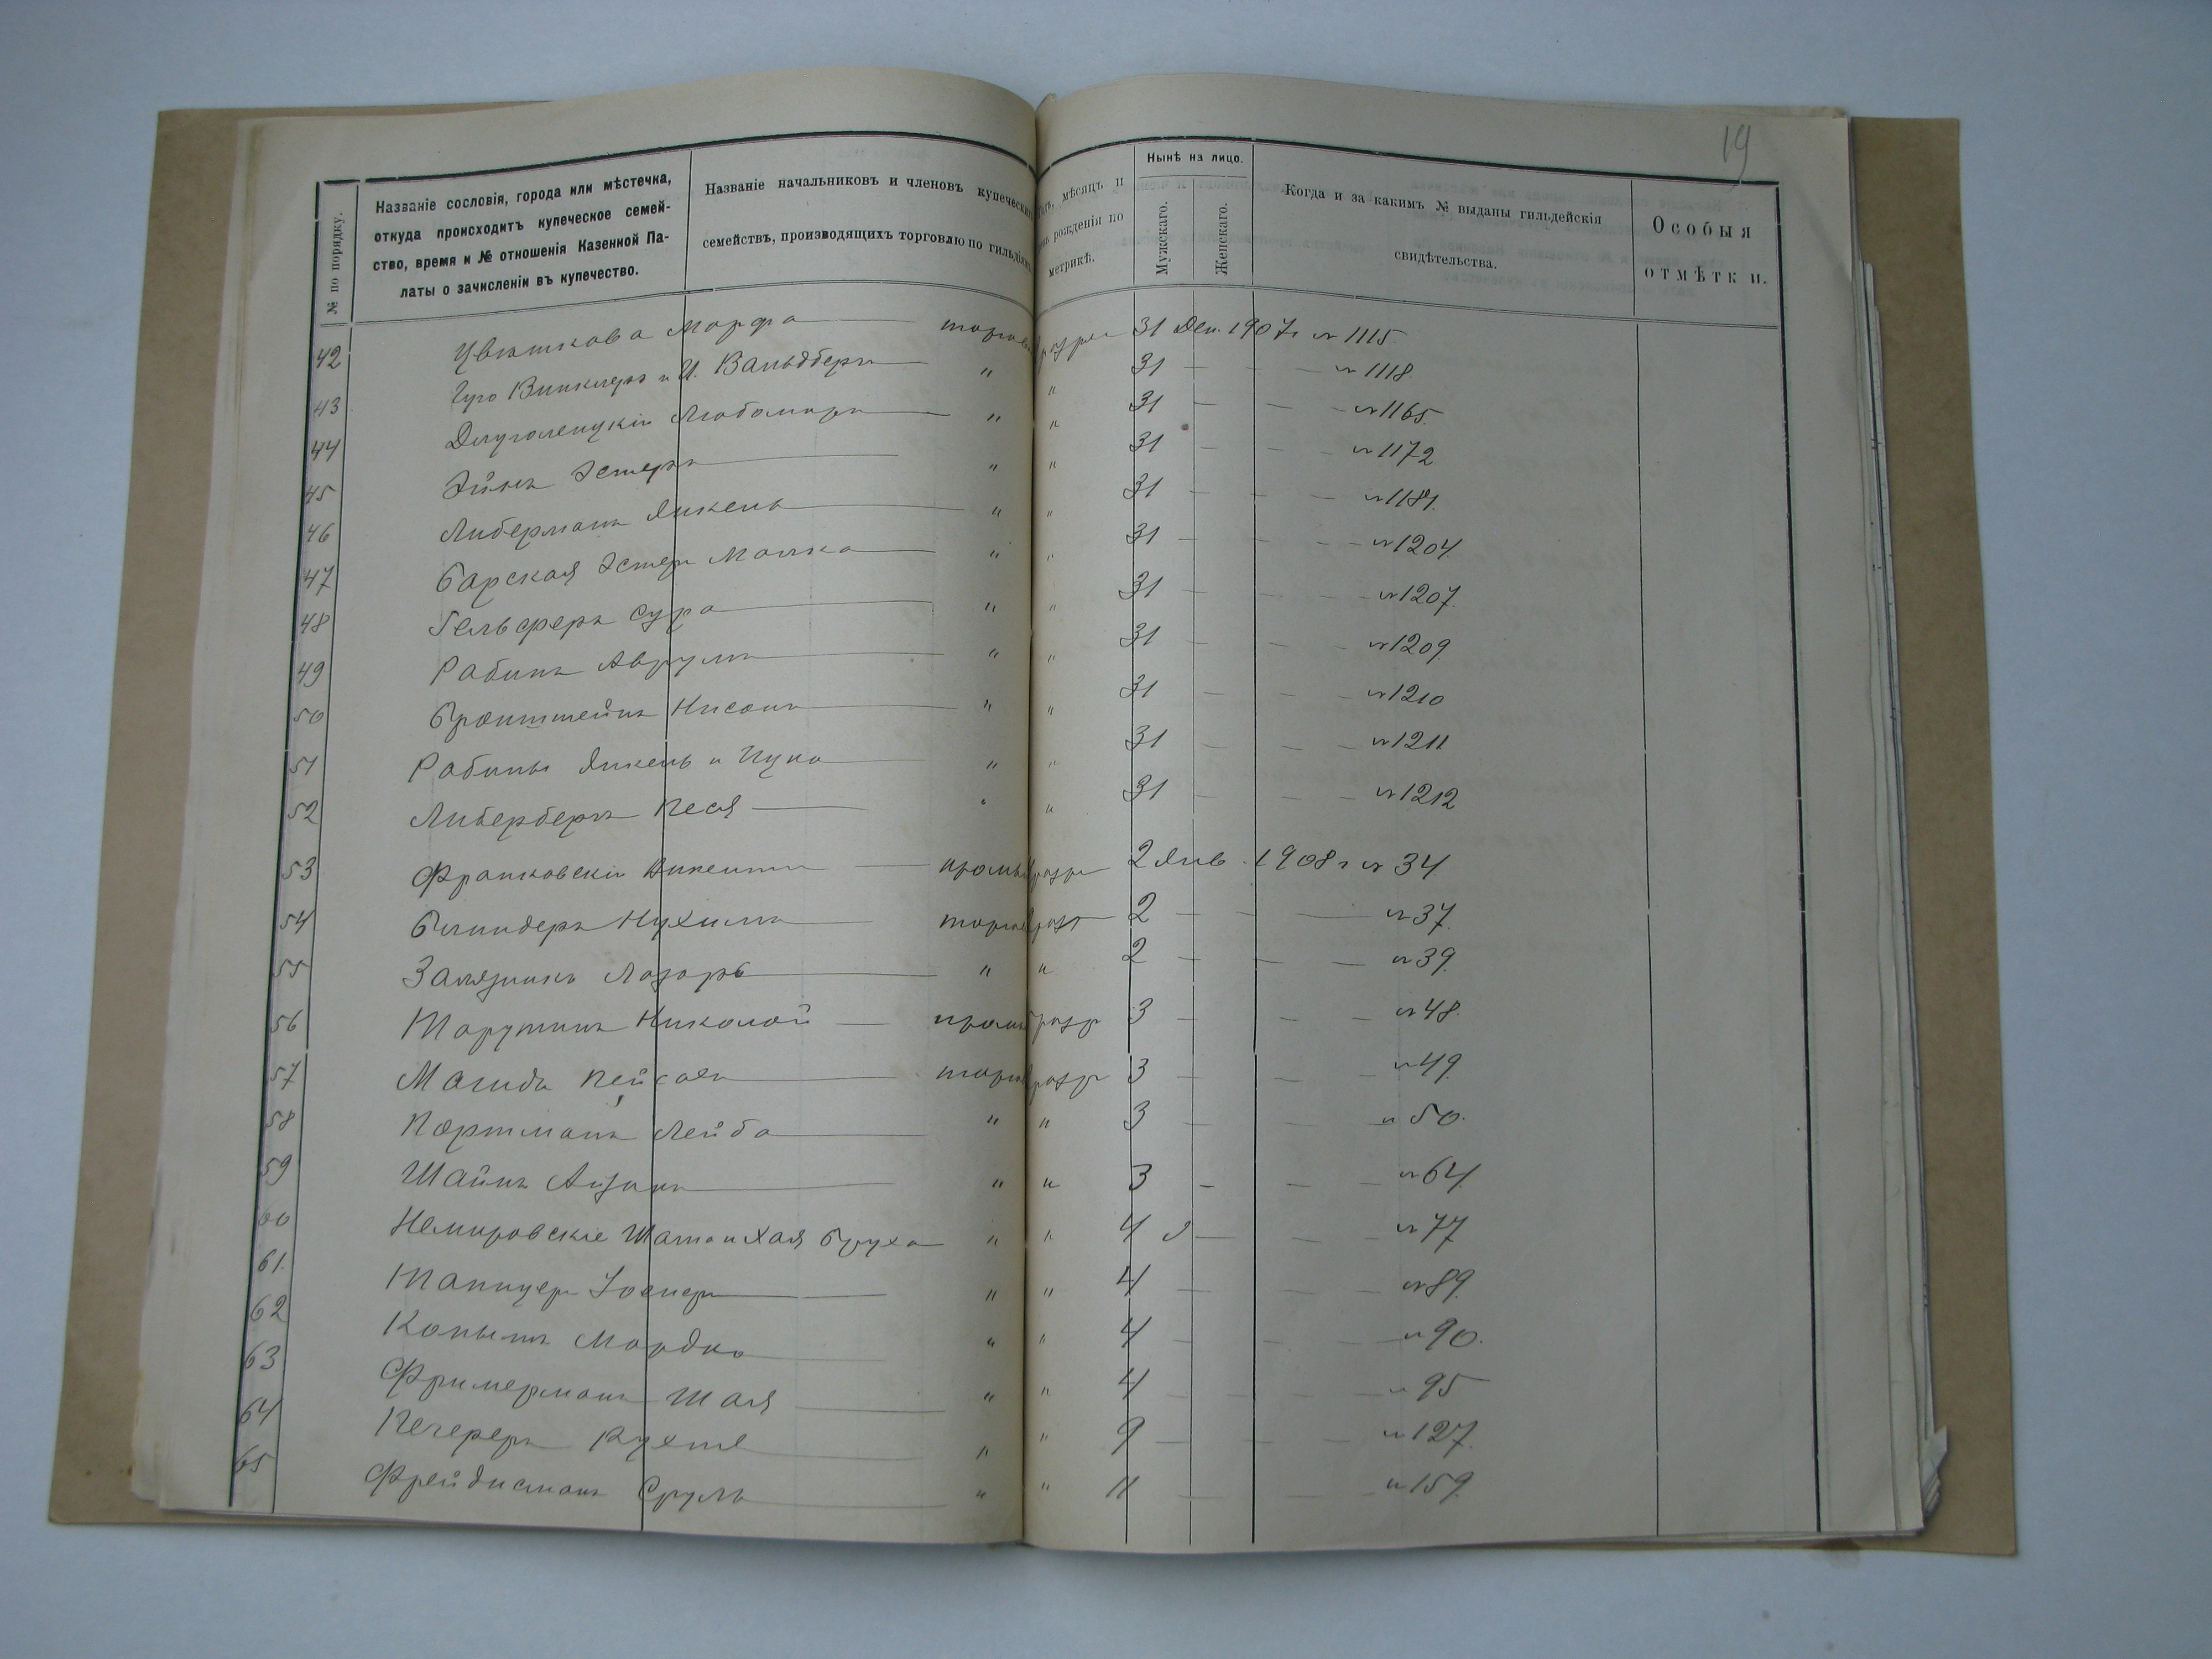 19
№ по порядку.
Названіе сословія, города или мѣстечка,
откуда происходитъ купеческое семей-
ство, время и № отношенія Казенной Па-
латы о зачисленіи въ купечество.
Названіе начальниковъ и членовъ купеческихъ
семействъ, производящихъ торговлю по гильдіямъ
мѣсяцъ и
рожденія по
метрикѣ.
Нынѣ на лицо.
Мужскаго.
Женскаго.
Когда и за какимъ № выданы гильдейскія
свидѣтельства.
Особыя
отмѣтки.
42 Цвѣткова Марфа — торгов разря 31 Дек. 1907 г № 1115
43 Гуго Винклеръ и И. Вальдбергъ — " " 31 — — — № 1118.
44 Длуголенцкій — " " 31 — — — № 1165.
45 Эйнъ Эстеръ — " " 31 — — — № 1172
46 Либерманъ Янкель — " " 31 — — —
47 Барская Эстеръ Малка — " " 31 — — — № 1204.
48 Гельферъ Сура — " " 31 — — — № 1207.
49 Рабинъ Аврумъ — " " 31 — — № 1209.
50 Бронштейнъ Нисонъ — " " 31 — — — № 1210
51 Рабины Янкель и — " " 31 — — — № 1211
52 Либербергъ Песя — " " 31 — — — № 1212
53 Франковскій Викентій — промы разр 2 Янв. 1908 г № 34
54 Блиндеръ Нухимъ — торгов разр 2 — — — № 37.
55 Лазарь — " " 2 — — — № 39.
56 Тарутинъ Николай — пром разр 3 — — — № 48.
57 Магидъ Пейсахъ — торгов разр 3 — — — № 49.
58 Портманъ Лейба — " " 3 — — — № 50.
59 Шайнъ — " " 3 — — — № 64.
60 Немировскіе и Хая Бруха " " 4 — — — № 77
61. Тапицеръ — " " 4 — — — № 89.
62 Копытъ Мордко — " " 4 — — — № 90.
63 Фримерманъ Шая — " " 4 — — — № 95
64 Печеръ — " " 9 — — — № 127.
65 Фрейдисманъ Сруль — " " 11 — — — № 159.